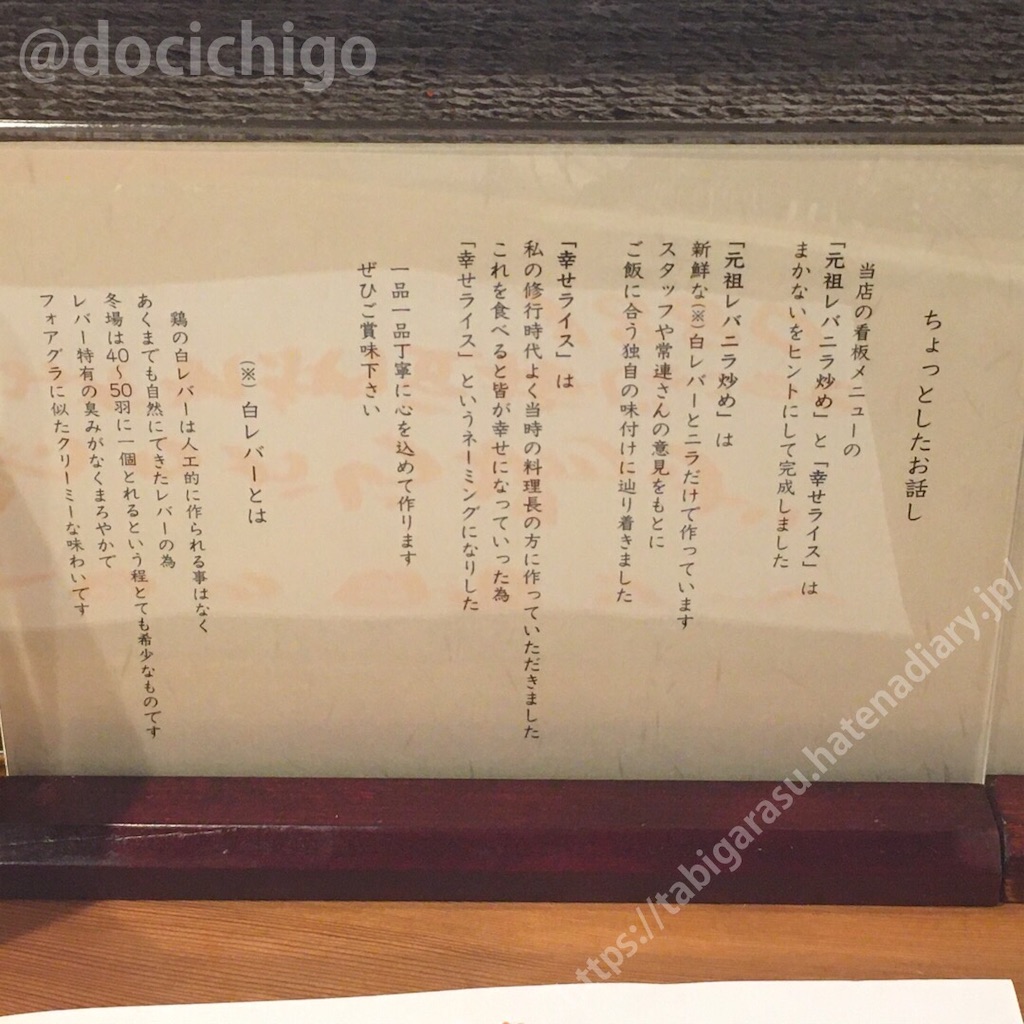 @docichigo
ちょっとしたお話し
当店の看板メニューの
「元祖レバニラ炒め」と「幸せライス」は
まかないをヒントにして完成しました
「元祖レバニラ炒め」は
新鮮な(※)白レバーとニラだけで作っています
スタッフや常連さんの意見をもとに
ご飯に合う独自の味付けに辿り着きました
「幸せライス」は
私の修行時代よく当時の料理長の方に作っていただきました
これを食べると皆が幸せになっていった為
「幸せライス」というネーミングになりした
一品一品丁寧に心を込めて作ります
ぜひご賞味下さい
(※)白レバーとは
鶏の白レバーは人工的に作られる事はなく
あくまでも自然にできたレバーの為
冬場は40〜50羽に一個とれるという程とても希少なものです
レバー特有の臭みがなくまろやかで
フォアグラに似たクリーミーな味わいです
https://tabigarasu.hatenadiary.jp/